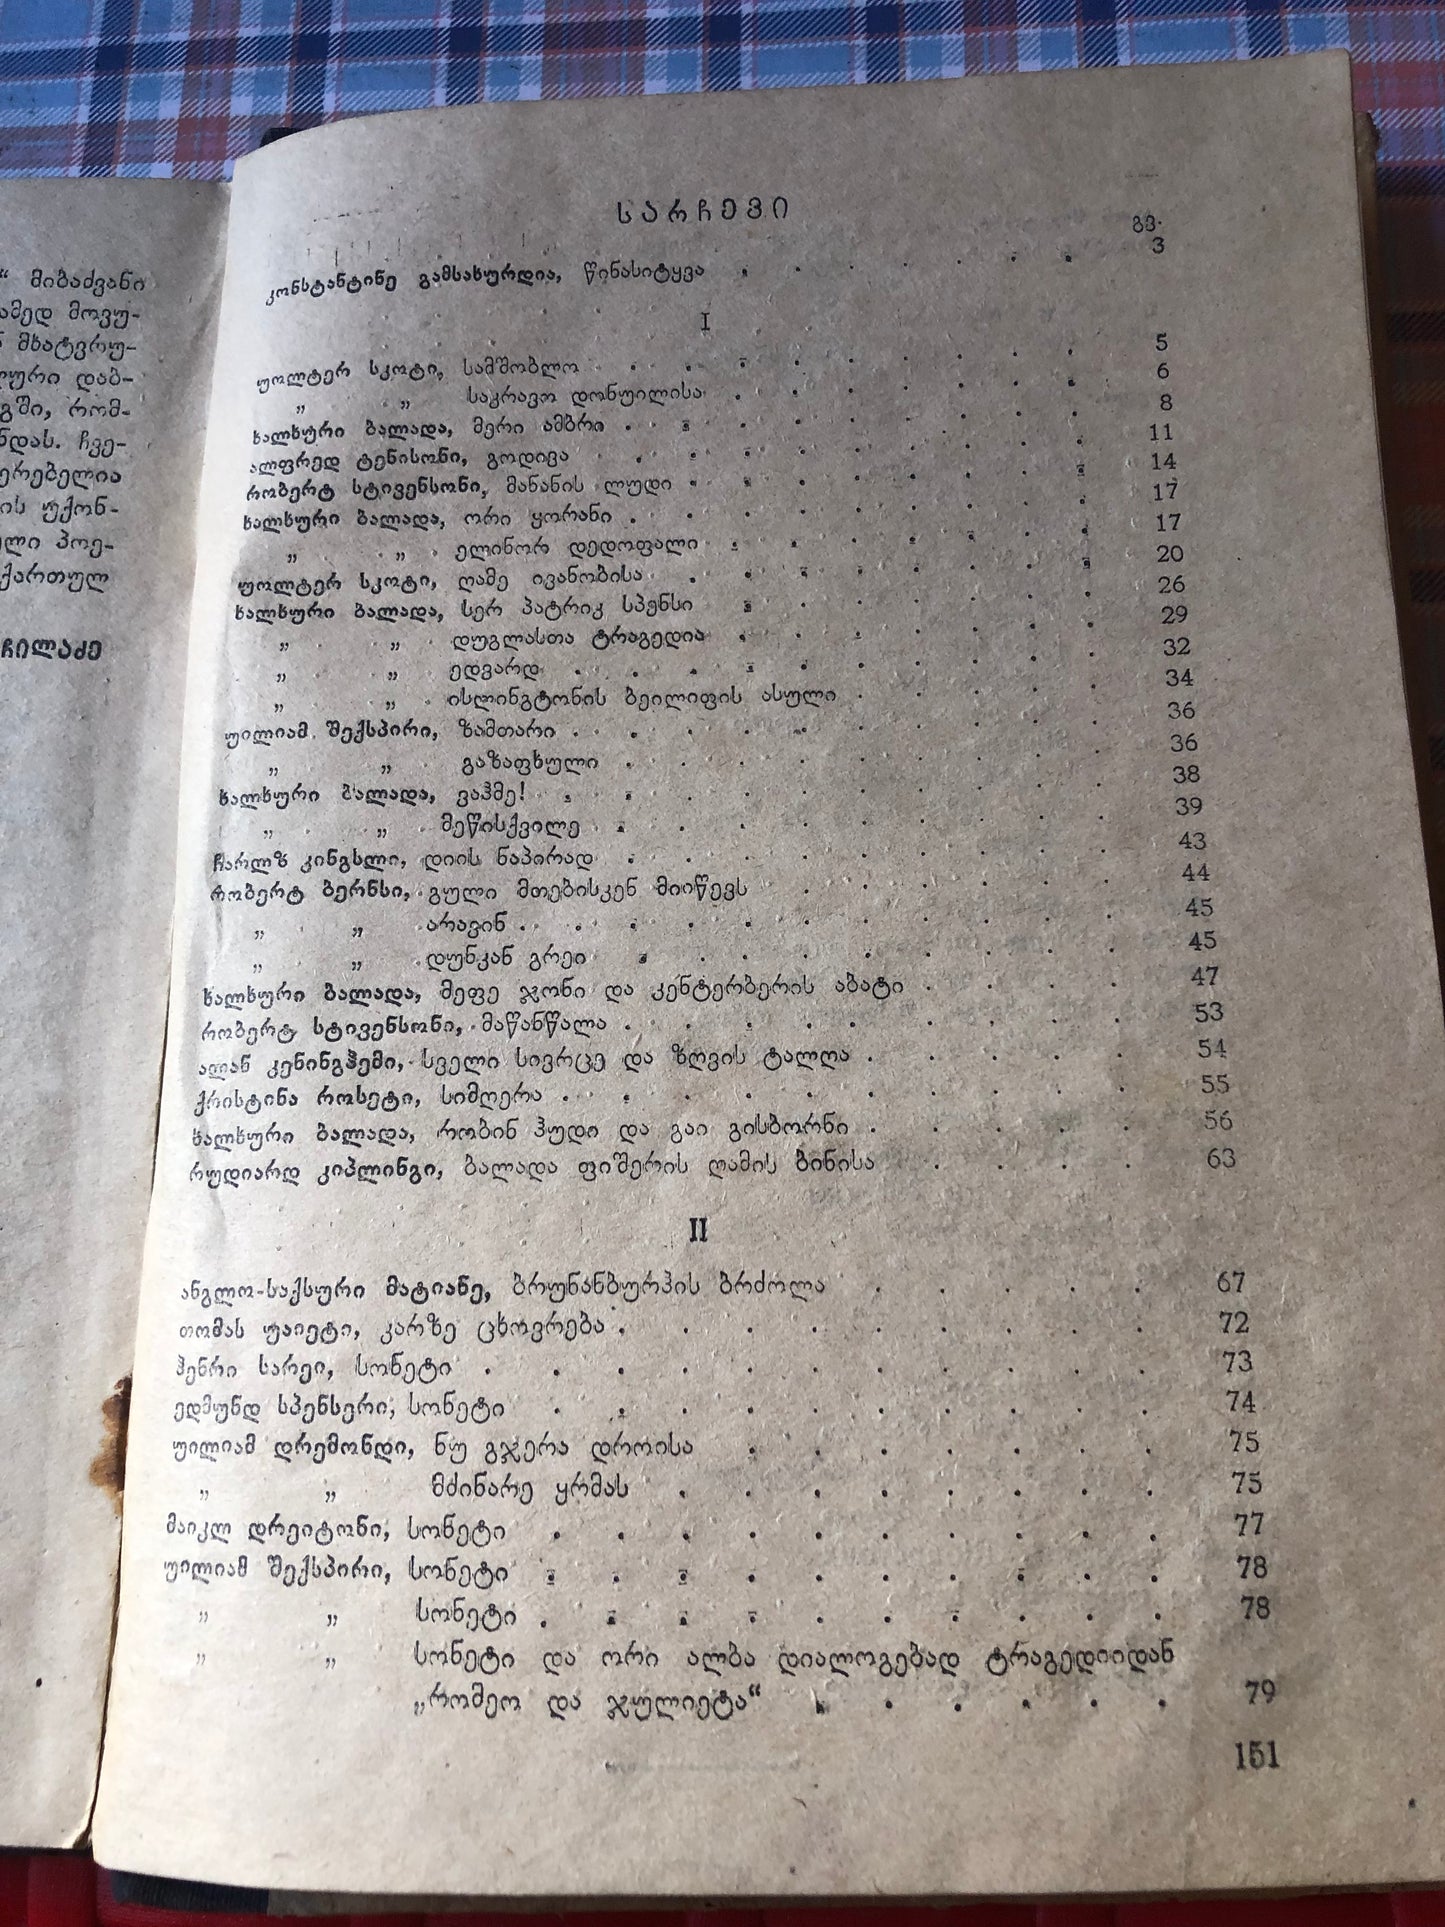 “ მიბაძვანი
ამედ მოვუ-
მხატვრუ-
ური დაბ-
გში, რომ-
ნდას. ჩვე-
ერებელია
ის უქონ-
ლი პოე-
ქართულ
ჩილაძე
სარჩევი
გვ.
კონსტანტინე გამსახურდია, წინასიტყვა 3
I
უოლტერ სკოტი, სამშობლო 5
„ „ საკრავო დონუილისა 6
ხალხური ბალადა, მერი ამბრი 8
ალფრედ ტენისონი, გოდივა 11
რობერტ სტივენსონი, მანანის ლუდი 14
ხალხური ბალადა, ორი ყორანი 17
„ „ ელინორ დედოფალი 17
უოლტერ სკოტი, ღამე ივანობისა 20
ხალხური ბალადა, სერ პატრიკ სპენსი 26
„ „ დუგლასთა ტრაგედია 29
„ „ ედვარდ 32
„ „ ისლინგტონის ბეილიფის ასული 34
უილიამ შექსპირი, ზამთარი 36
„ „ გაზაფხული 36
ხალხური ბალადა, ვაჰმე! 38
„ „ მეწისქვილე 39
ჩარლზ კინგსლი, დიის ნაპირად 43
რობერტ ბერნსი, გული მთებისკენ მიიწევს 44
„ „ არავინ 45
„ „ დუნკან გრეი 45
ხალხური ბალადა, მეფე ჯონი და კენტერბერის აბატი 47
რობერტ სტივენსონი, მაწანწალა 53
ალან კენინგჰემი, სველი სივრცე და ზღვის ტალღა 54
ქრისტინა როსეტი, სიმღერა 55
ხალხური ბალადა, რობინ ჰუდი და გაი გისბორნი 56
რუდიარდ კიპლინგი, ბალადა ფიშერის ღამის ბინისა 63
II
ანგლო-საქსური მატიანე, ბრუნანბურჰის ბრძოლა 67
თომას უაიეტი, კარზე ცხოვრება 72
ჰენრი სარეი, სონეტი 73
ედმუნდ სპენსერი, სონეტი 74
უილიამ დრემონდი, ნუ გჯერა დროისა 75
„ „ მძინარე ყრმას 75
მაიკლ დრეიტონი, სონეტი 77
უილიამ შექსპირი, სონეტი 78
„ „ სონეტი 78
„ „ სონეტი და ორი ალბა დიალოგებად ტრაგედიიდან
„რომეო და ჯულიეტა“ 79
151